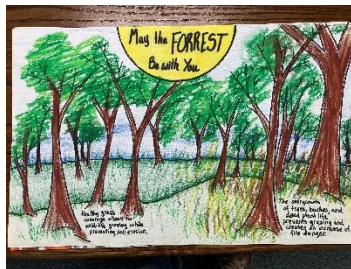 May the FORREST
Be with You
Healthy grass
coverage allows for
wildlife grazing while
preventing soil erosion.
The overgrowth
of trees, bushes, and
dead plant life
prevents grazing and
creates an increase of
fire danger.